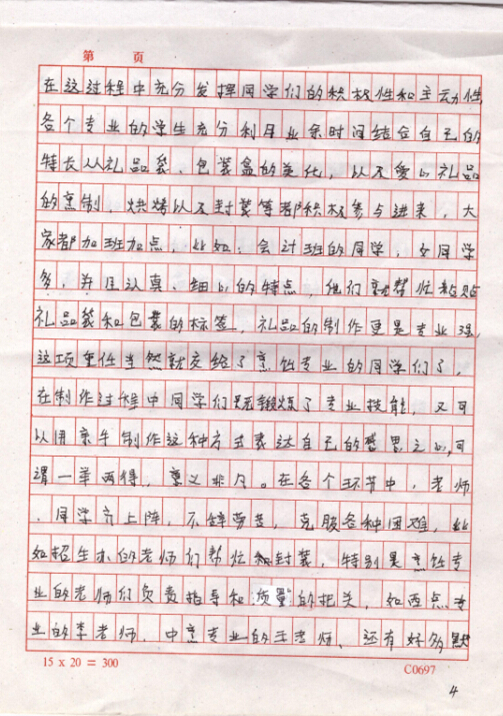 第 页
在这过程中充分发挥同学们的积极性和主动性,
各个专业的学生充分利用业余时间结合自己的
特长从礼品袋、包装盒的美化,以及爱心礼品
的烹制、烘烤以及封装等都积极参与进来,大
家都加班加点,比如:会计班的同学,女同学
多,并且认真、细心的特点,他们就帮忙粘贴
礼品袋和包装的标签,礼品的制作更是专业强,
这项重任当然就交给了烹饪专业的同学们了,
在制作过程中同学们既锻炼了专业技能,又可
以用亲手制作这种方式表达自己的感恩之心,可
谓一举两得,意义非凡。在各个环节中,老师
、同学齐上阵,不辞劳苦,克服各种困难,比
如招生办的老师们帮忙和封装,特别是烹饪专
业的老师们负责指导和质量的把关,如西点专
业的李老师、中烹专业的王老师、还有好多默
15 x 20 = 300 C0697
4